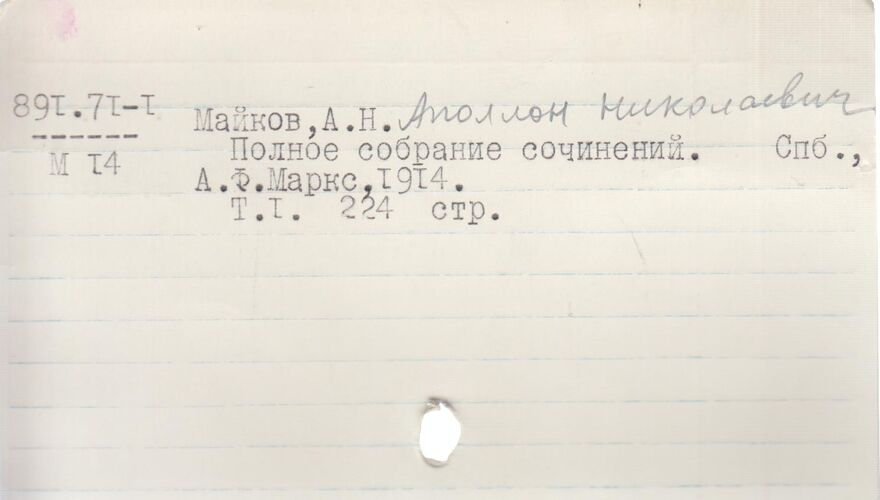 891.71-1
------
М 14
Майков,А.Н. Аполлон Николаевич
Полное собрание сочинений. Спб.,
А.Ф.Маркс,1914.
Т.1. 224 стр.